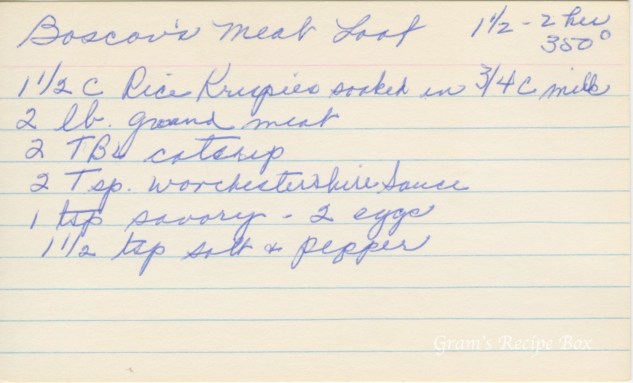 Boscov's Meat Loaf 1 1/2 - 2 hrs
350°
1 1/2 C Rice Krispies soaked in 3/4 C milk
2 lb. ground meat
2 TBs catsup
2 Tsp. Worchestershire Sauce
1 tsp savory - 2 eggs
1 1/2 tsp salt & pepper
Gram's Recipe Box